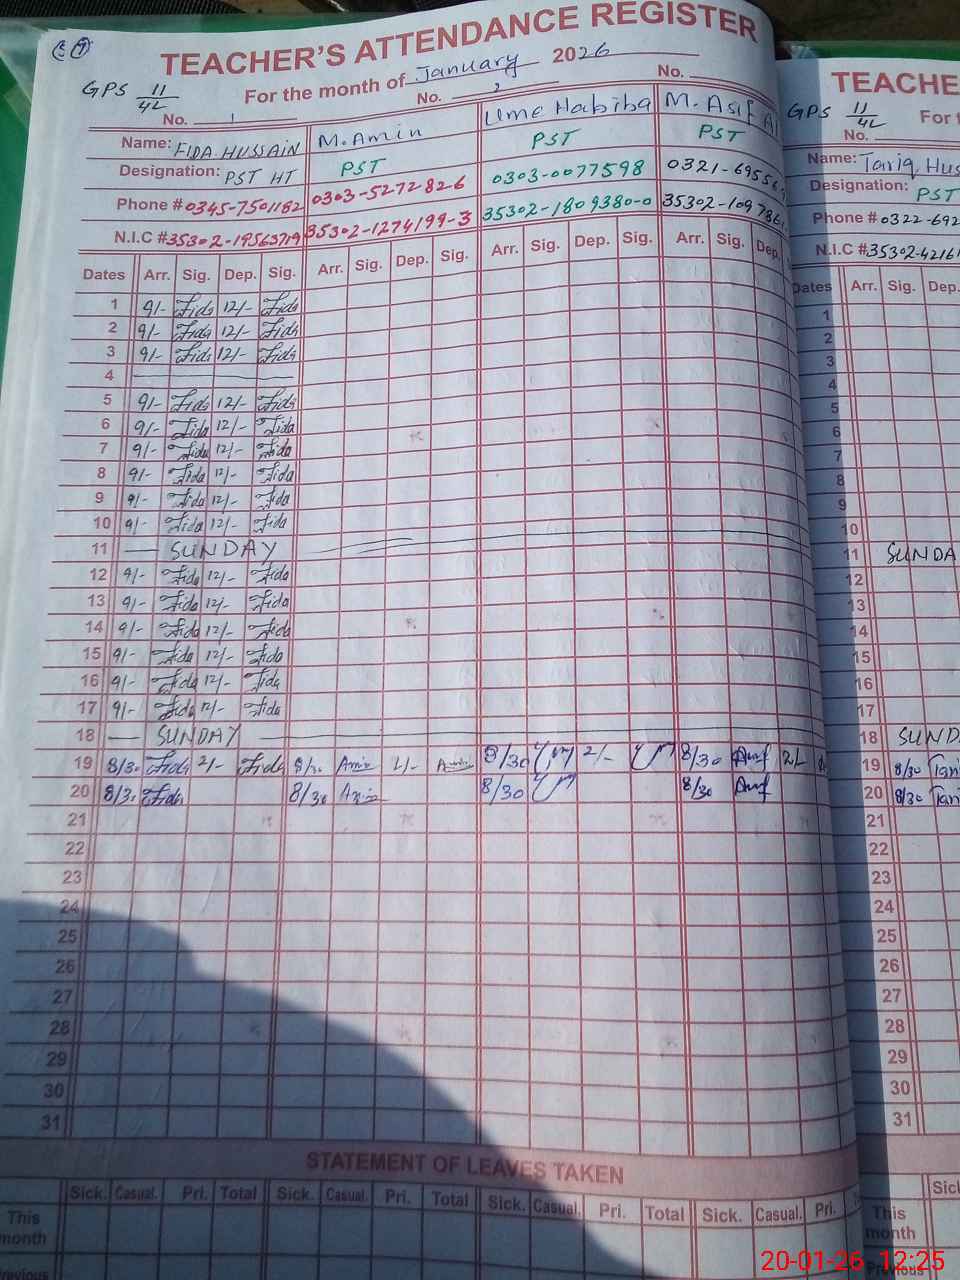 TEACHER'S ATTENDANCE REGISTER
GPS 11/4L For the month of January 2026
No. 1 No. 2 No.
Name: FIDA HUSSAIN M. Amin Ume Habiba M. Asif
Designation: PST HT PST PST PST
Phone # 0345-7501182 0303-5272826 0303-0077598 0321-6955
N.I.C # 35302-1956371 35302-1274199-3 35302-1809380-0 35302-10978
Dates Arr. Sig. Dep. Sig. Arr. Sig. Dep. Sig. Arr. Sig. Dep. Sig. Arr. Sig. Dep.
1 9/- Fida 12/- Fida
2 9/- Fida 12/- Fida
3 9/- Fida 12/- Fida
4
5 9/- Fida 12/- Fida
6 9/- Fida 12/- Fida
7 9/- Fida 12/- Fida
8 9/- Fida 12/- Fida
9 9/- Fida 12/- Fida
10 9/- Fida 12/- Fida
11 — SUNDAY
12 9/- Fida 12/- Fida
13 9/- Fida 12/- Fida
14 9/- Fida 12/- Fida
15 9/- Fida 12/- Fida
16 9/- Fida 12/- Fida
17 9/- Fida 12/- Fida
18 — SUNDAY
19 8/30 Fida 2/- Fida 8/30 Amin 2/- Amin 8/30 2/- 8/30 Asif 2/-
20 8/30 Fida 8/30 Amin 8/30 8/30 Asif
21
22
23
24
25
26
27
28
29
30
31
STATEMENT OF LEAVES TAKEN
Sick. Casual. Pri. Total Sick. Casual. Pri. Total Sick. Casual. Pri. Total Sick. Casual. Pri.
This month
Previous
TEACHE
GPS 11/4L For t
No.
Name: Tariq Hus
Designation: PST
Phone # 0322-692
N.I.C # 35302-4216
Dates Arr. Sig. Dep.
1
2
3
4
5
6
7
8
9
10
11 SUNDA
12
13
14
15
16
17
18 SUND
19 8/30 Tari
20 8/30 Tari
21
22
23
24
25
26
27
28
29
30
31
Sic
This month
Previous
20-01-26 12:25